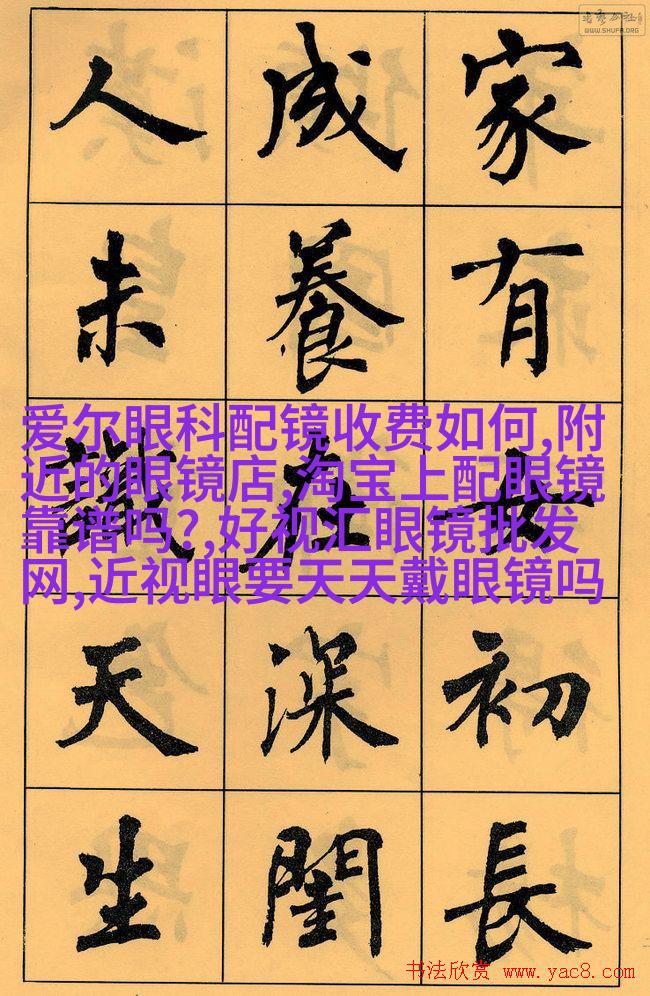 WWW.SHUFA.ORG
家有女初長
成養在深閨
人未識天生
爱尔眼科配镜收费如何,附
近的眼镜店,淘宝上配眼镜
靠谱吗?,好视汇眼镜批发
网,近视眼要天天戴眼镜吗
书法欣赏 www.yac8.com